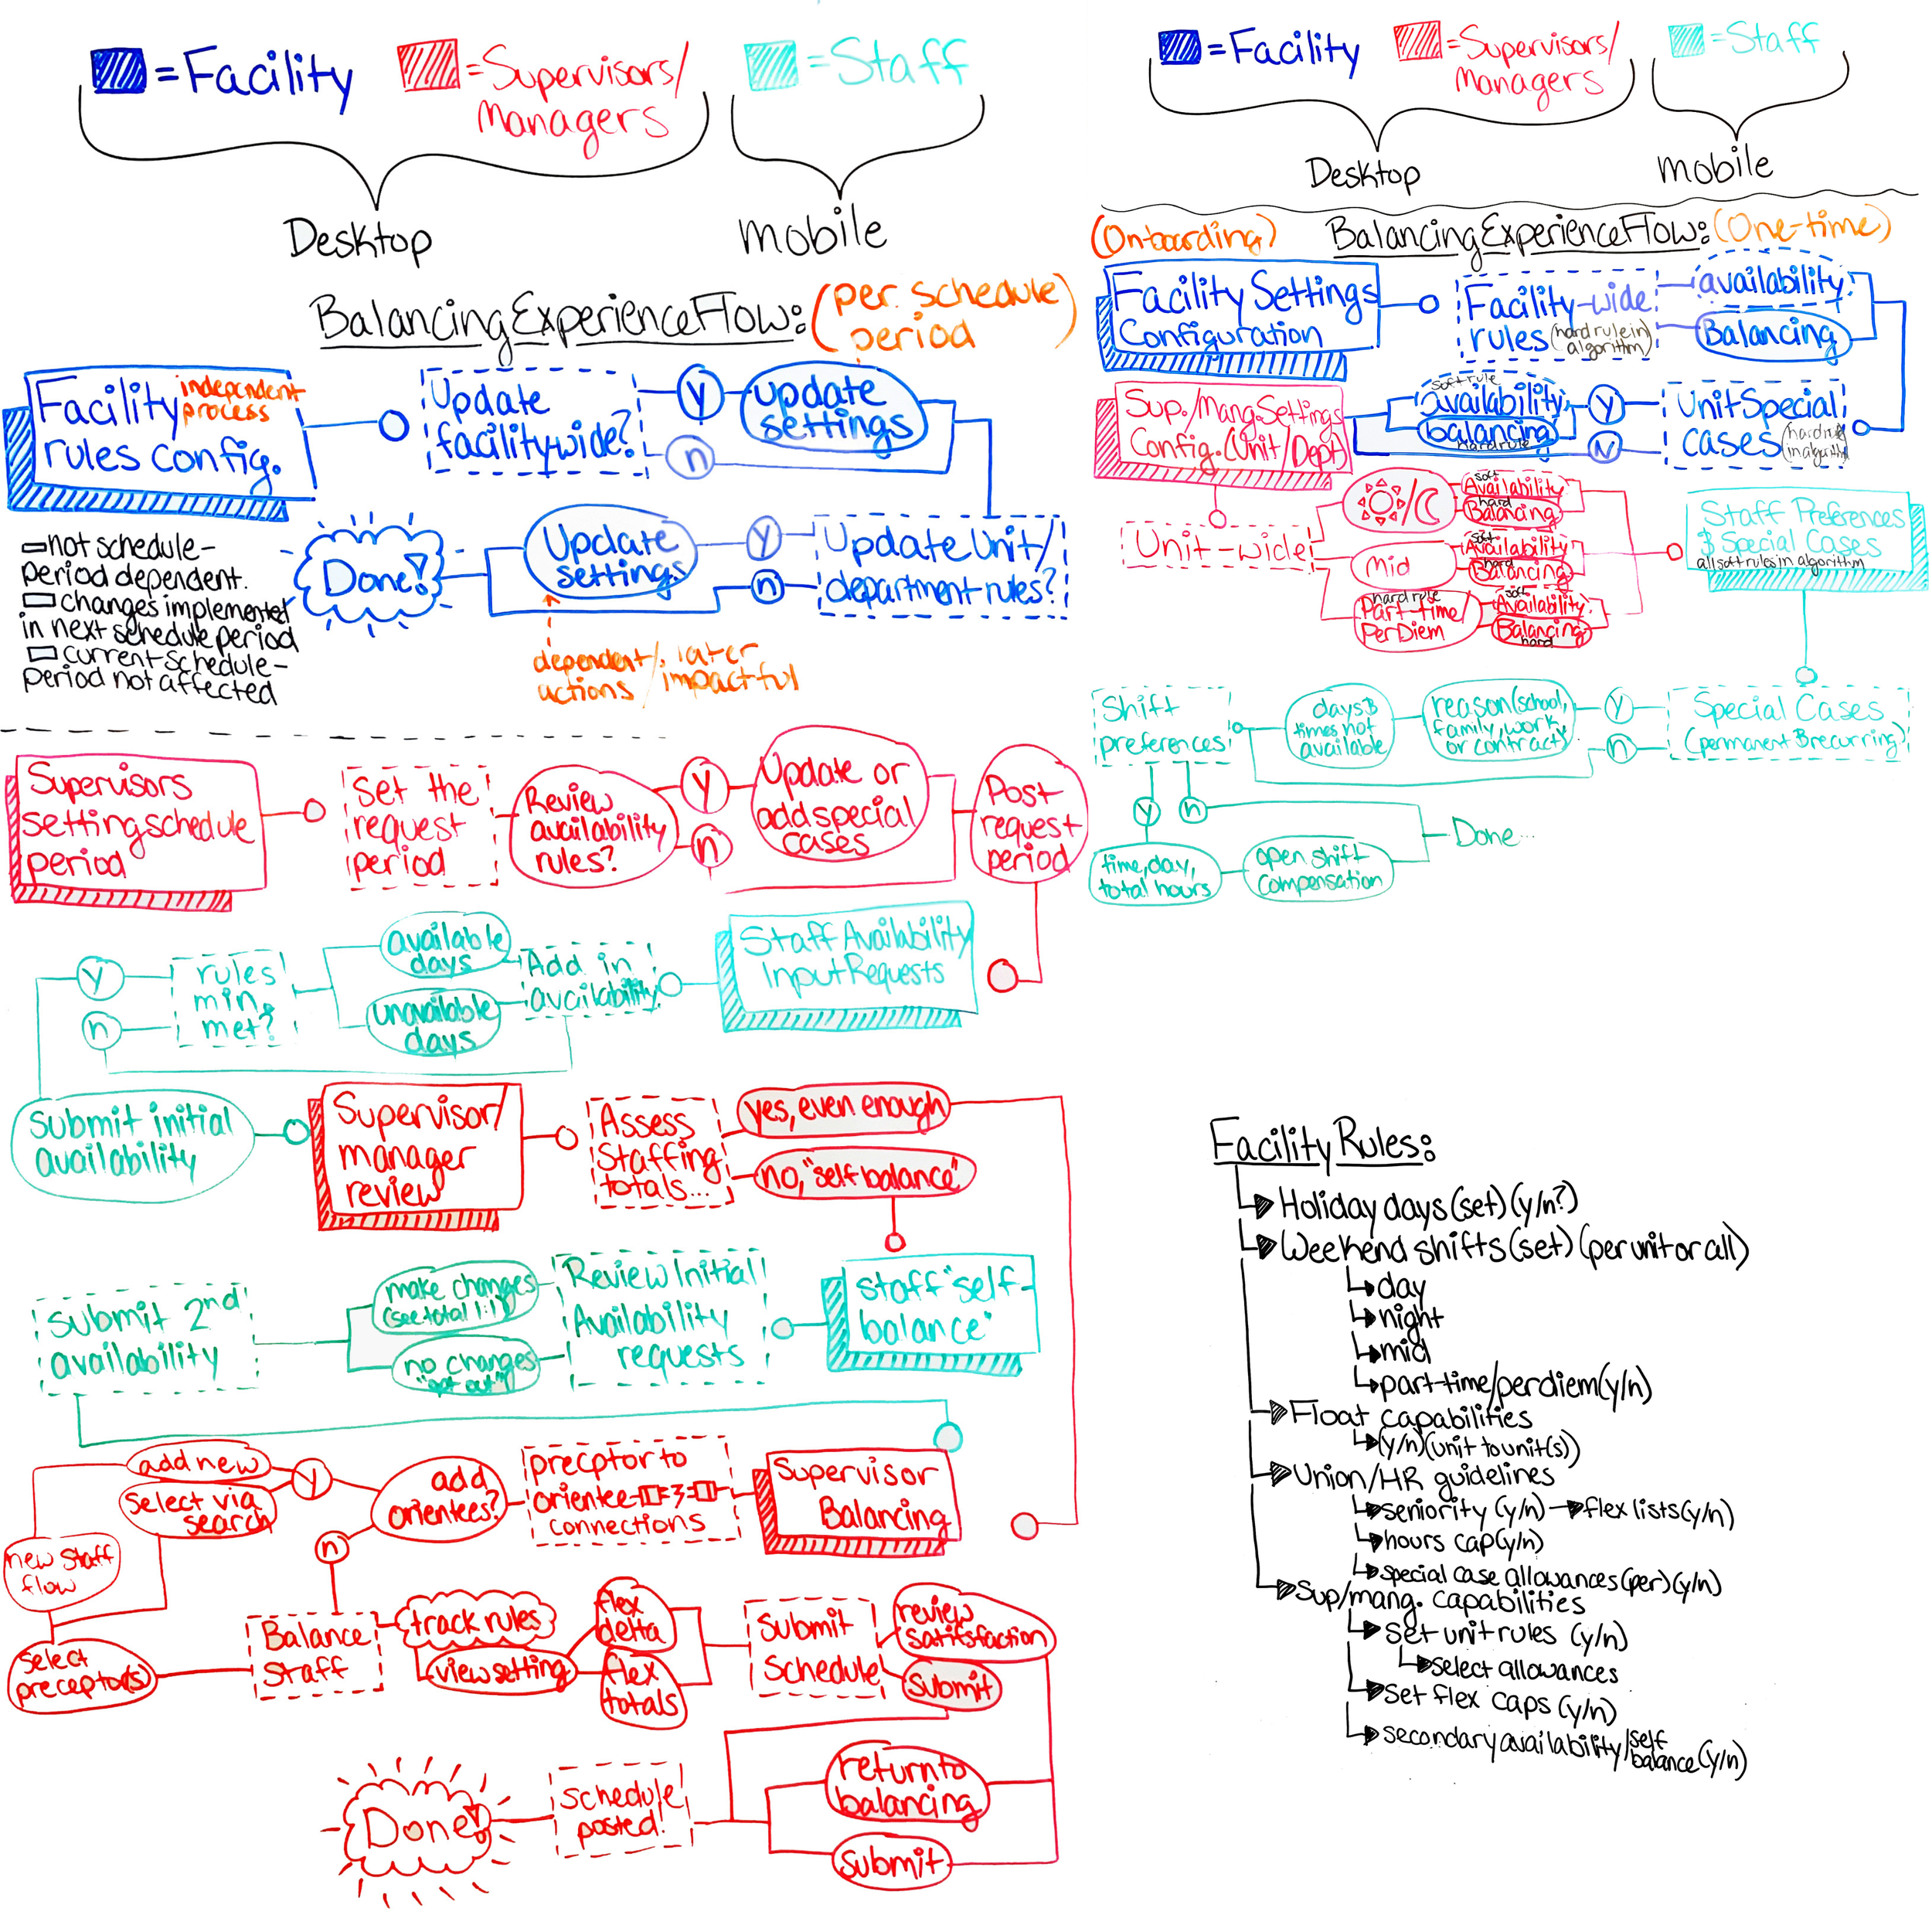 =Facility
=Supervisors/
Managers
=Staff
Desktop
mobile
Balancing Experience Flow:
(per schedule
period)
Facility
rules config.
independent
process
Update
facilitywide?
y
n
update
settings
Update Unit/
department rules?
y
n
Update
settings
Done!
not schedule-
period dependent.
changes implemented
in next schedule period
current schedule-
period not affected
dependent/later
actions/impactful
Supervisors
setting schedule
period
set the
request
period
Review
availability
rules?
y
n
Update or
add special
cases
Post
request
period
Staff Availability
Input Requests
Add in
availability
available
days
unavailable
days
rules
min.
met?
y
n
Submit initial
availability
Supervisor/
manager
review
Assess
Staffing
totals...
yes, even enough
no, "self balance"
staff "self-
balance"
Review Initial
Availability
requests
make changes
(see total 1:1)
no changes
"opt out"
submit 2nd
availability
Supervisor
Balancing
precptor to
orientee
connections
add
orientees?
y
n
add new
select via
search
new staff
flow
select
preceptor(s)
Balance
Staff
track rules
view setting
flex
delta
flex
totals
Submit
Schedule
review
satisfaction
Submit
return to
balancing
Submit
schedule
posted!
Done!
=Facility
=Supervisors/
Managers
=Staff
Desktop
mobile
(Onboarding)
Balancing Experience Flow:
(One-time)
Facility Settings
Configuration
Facility-wide
rules (hard rule in
algorithm)
availability
Balancing
Unit Special
cases (hard rule
in algorithm)
Y
N
soft rule
availability
balancing
hard rule
Sup./Mang. Settings
Config. (Unit/Dept)
Unit-wide
/
soft
Availability
hard
Balancing
Mid
soft
Availability
hard
Balancing
hard rule
Part-time/
Per Diem
soft
Availability
Balancing
hard
Staff Preferences
& Special Cases
all soft rules in algorithm
Special Cases
(permanent & recurring)
y
n
reason (school,
family, work,
or contract)
days &
times not
available
Shift
preferences
y
n
time, day,
total hours
open shift
compensation
Done...
Facility Rules:
Holiday days (set) (y/n?)
Weekend shifts (set) (per unit or all)
day
night
mid
part-time/perdiem (y/n)
Float capabilities
(y/n) (unit to unit(s))
Union/HR guidelines
seniority (y/n) → flex lists (y/n)
hours cap (y/n)
special case allowances (per) (y/n)
Sup/mang. capabilities
set unit rules (y/n)
select allowances
set flex caps (y/n)
secondary availability/self
balance (y/n)